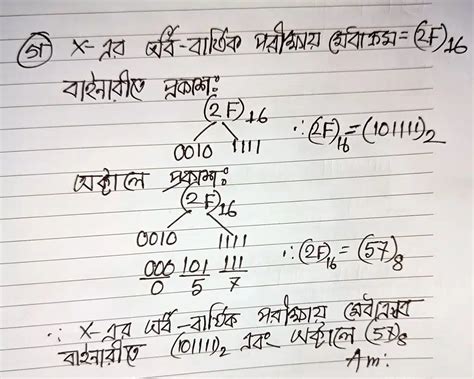 গ X-এর অর্ধ-বার্ষিক পরীক্ষায় মেধাক্রম=(2F)16
বাইনারীতে প্রকাশঃ
(2F)16
0010 1111
∴(2F)16=(101111)2
অক্টালে প্রকাশঃ
(2F)16
0010 1111
000 101 111
0 5 7
∴(2F)16=(57)8
∴ X-এর অর্ধ-বার্ষিক পরীক্ষায়
বাইনারীতে (101111)2 এবং অক্টালে (57)8
Am: